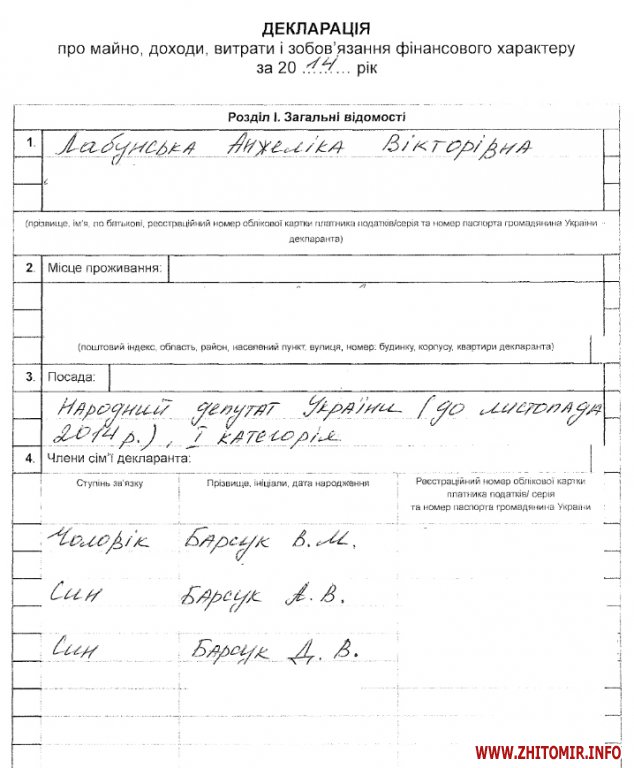 ДЕКЛАРАЦІЯ
про майно, доходи, витрати і зобов'язання фінансового характеру
за 20 14 рік
Розділ І. Загальні відомості
1. Лабунська Анжеліка Вікторівна
(прізвище, ім'я, по батькові, реєстраційний номер облікової картки платника податків/серія та номер паспорта громадянина України -
декларанта)
2. Місце проживання:
(поштовий індекс, область, район, населений пункт, вулиця, номер: будинку, корпусу, квартири декларанта)
3. Посада:
Народний депутат України (до листопада
2014 р.), І категорія
4. Члени сім'ї декларанта:
Ступінь зв'язку Прізвище, ініціали, дата народження Реєстраційний номер облікової картки
платника податків/ серія
та номер паспорта громадянина України
Чоловік Барсук В. М.
Син Барсук А. В.
Син Барсук Д. В.
WWW.ZHITOMIR.INFO